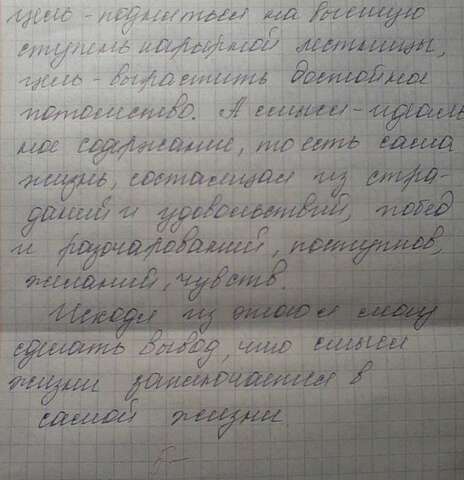 цель - подняться на высшую
ступень карьерной лестницы,
цель - вырастить достойное
потомство. А смысл - идеаль
ное содержание, то есть сама
жизнь, состоящая из стра-
даний и удовольствий, побед
и разочарований, поступков,
желаний, чувств.
Исходя из этого я могу
сделать вывод, что смысл
жизни заключается в
самой жизни.